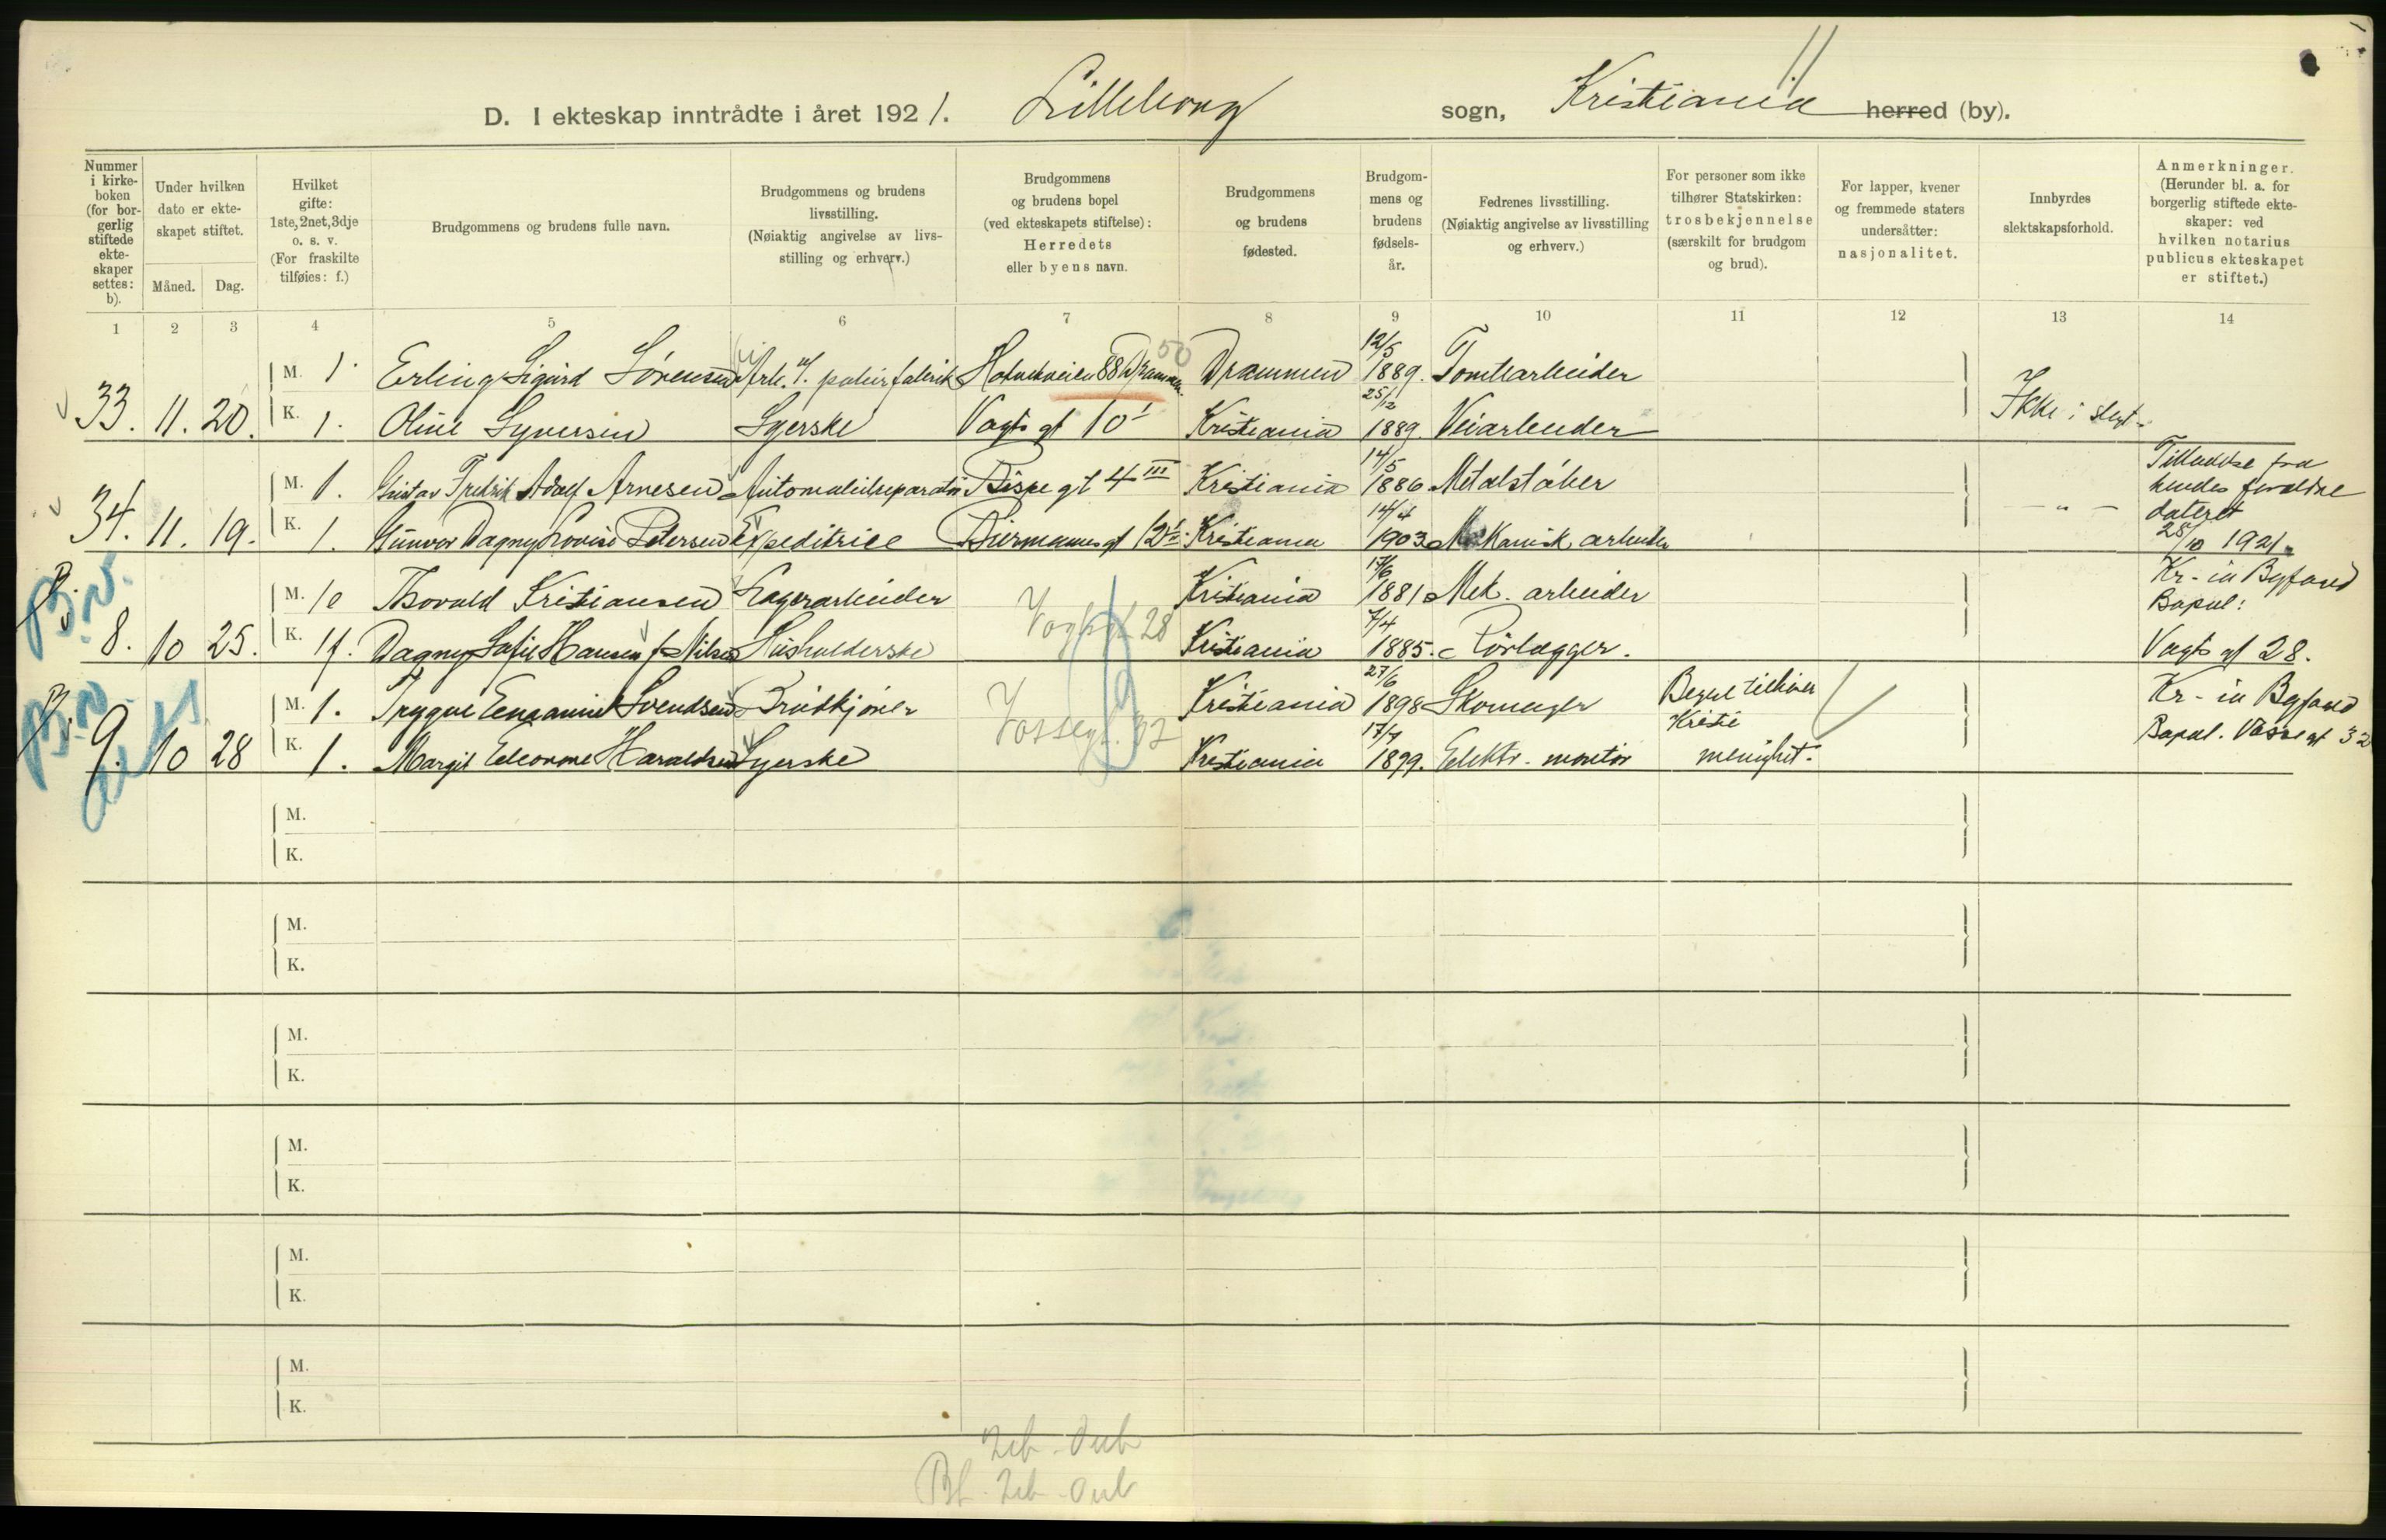 D. I ekteskap inntrådte i året 1921. Lilleborg sogn, Kristiania herred (by).
11
Nummer i kirke-boken (for bor-gerlig stiftede ekte-skaper settes: b).
Under hvilken dato er ekte-skapet stiftet.
Måned. Dag.
Hvilket gifte: 1ste, 2net, 3dje o. s. v. (For fraskilte tilføies: f.)
Brudgommens og brudens fulle navn.
Brudgommens og brudens livsstilling. (Nøiaktig angivelse av livs-stilling og erhverv.)
Brudgommens og brudens bopel (ved ekteskapets stiftelse): Herredets eller byens navn.
Brudgommens og brudens fødested.
Brudgom-mens og brudens fødsels-år.
Fedrenes livsstilling. (Nøiaktig angivelse av livsstilling og erhverv.)
For personer som ikke tilhører Statskirken: trosbekjennelse (særskilt for brudgom og brud).
For lapper, kvener og fremmede staters undersåtter: nasjonalitet.
Innbyrdes slektskapsforhold.
Anmerkninger. (Herunder bl. a. for borgerlig stiftede ekte-skaper: ved hvilken notarius publicus ekteskapet er stiftet.)
1 2 3 4 5 6 7 8 9 10 11 12 13 14
M. 1. Erling Sigurd Sørensen Arb. v/. papirfabrik 88 Drammen 50 Drammen 12/5 1889. Tomtearbeider
33. 11. 20. K. 1. Oline Syversen Syerske Vogts gt 10 I Kristiania 25/12 1889. Veiarbeider Ikke i slegt.
M. 1. Gustav Fredrik Adolf Arnesen Automobilreparatør Bispe gt 4 III Kristiania 14/5 1886 Metalstøber
34. 11. 19. K. 1. Gunvor Dagny Lovise Petersen Expeditrice Biermanns gt 12 Kristiania 14/4 1903 Mekanisk arbeider - " -
Tilladelse fra hendes forældre dateret 28/10 1921.
B. M. 1e Thorvald Kristiansen Lagerarbeider Kristiania 17/6 1881 Mek. arbeider Kr-ia Byfoged
Bopæl:
8. 10 25. K. 1f. Dagny Sofie Hansen f. Nilsen Husholderske Vogts gt 28 Kristiania 7/4 1885. Rørlægger. Vogts gt 28.
B. M. 1. Trygve Svendsen Brødkjører Kristiania 27/6 1898 Skomager Begge tilhører Kr-ia Byfoged
9. 10 28 K. 1. Margit Eleonore Haraldsen Syerske Vossegt. 32 Kristiania 17/7 1899. Elektr. montør menighet. Bopæl. Vosse gt 32
M.
K.
M.
K.
M.
K.
M.
K.
M.
K.
M.
K.